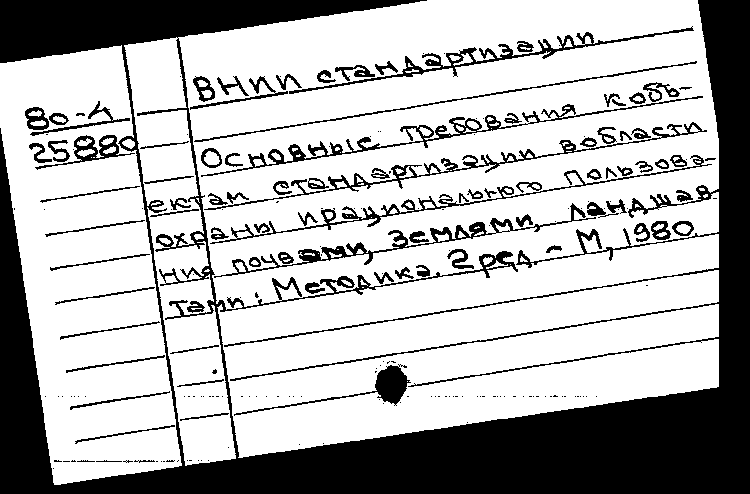 80-4
25880
ВНИИ стандартизации.
Основные требования к объ-
ектам стандартизации в области
охраны и рационального пользова-
ния почвами, землями, ландшаф-
тами: Методика. 2 ред. - М, 1980